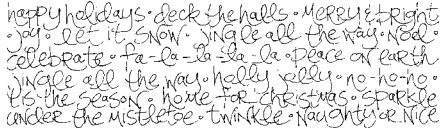 happy holidays · deck the halls · MeRRY & bright
· joy · let it snow · jingle all the way · Noel ·
celebrate · fa-la-la-la-la · peace on earth
jingle all the way · holly jolly · no-ho-ho ·
'tis the season · home for christmas · sparkle
under the mistletoe · twinkle · Naughty or Nice